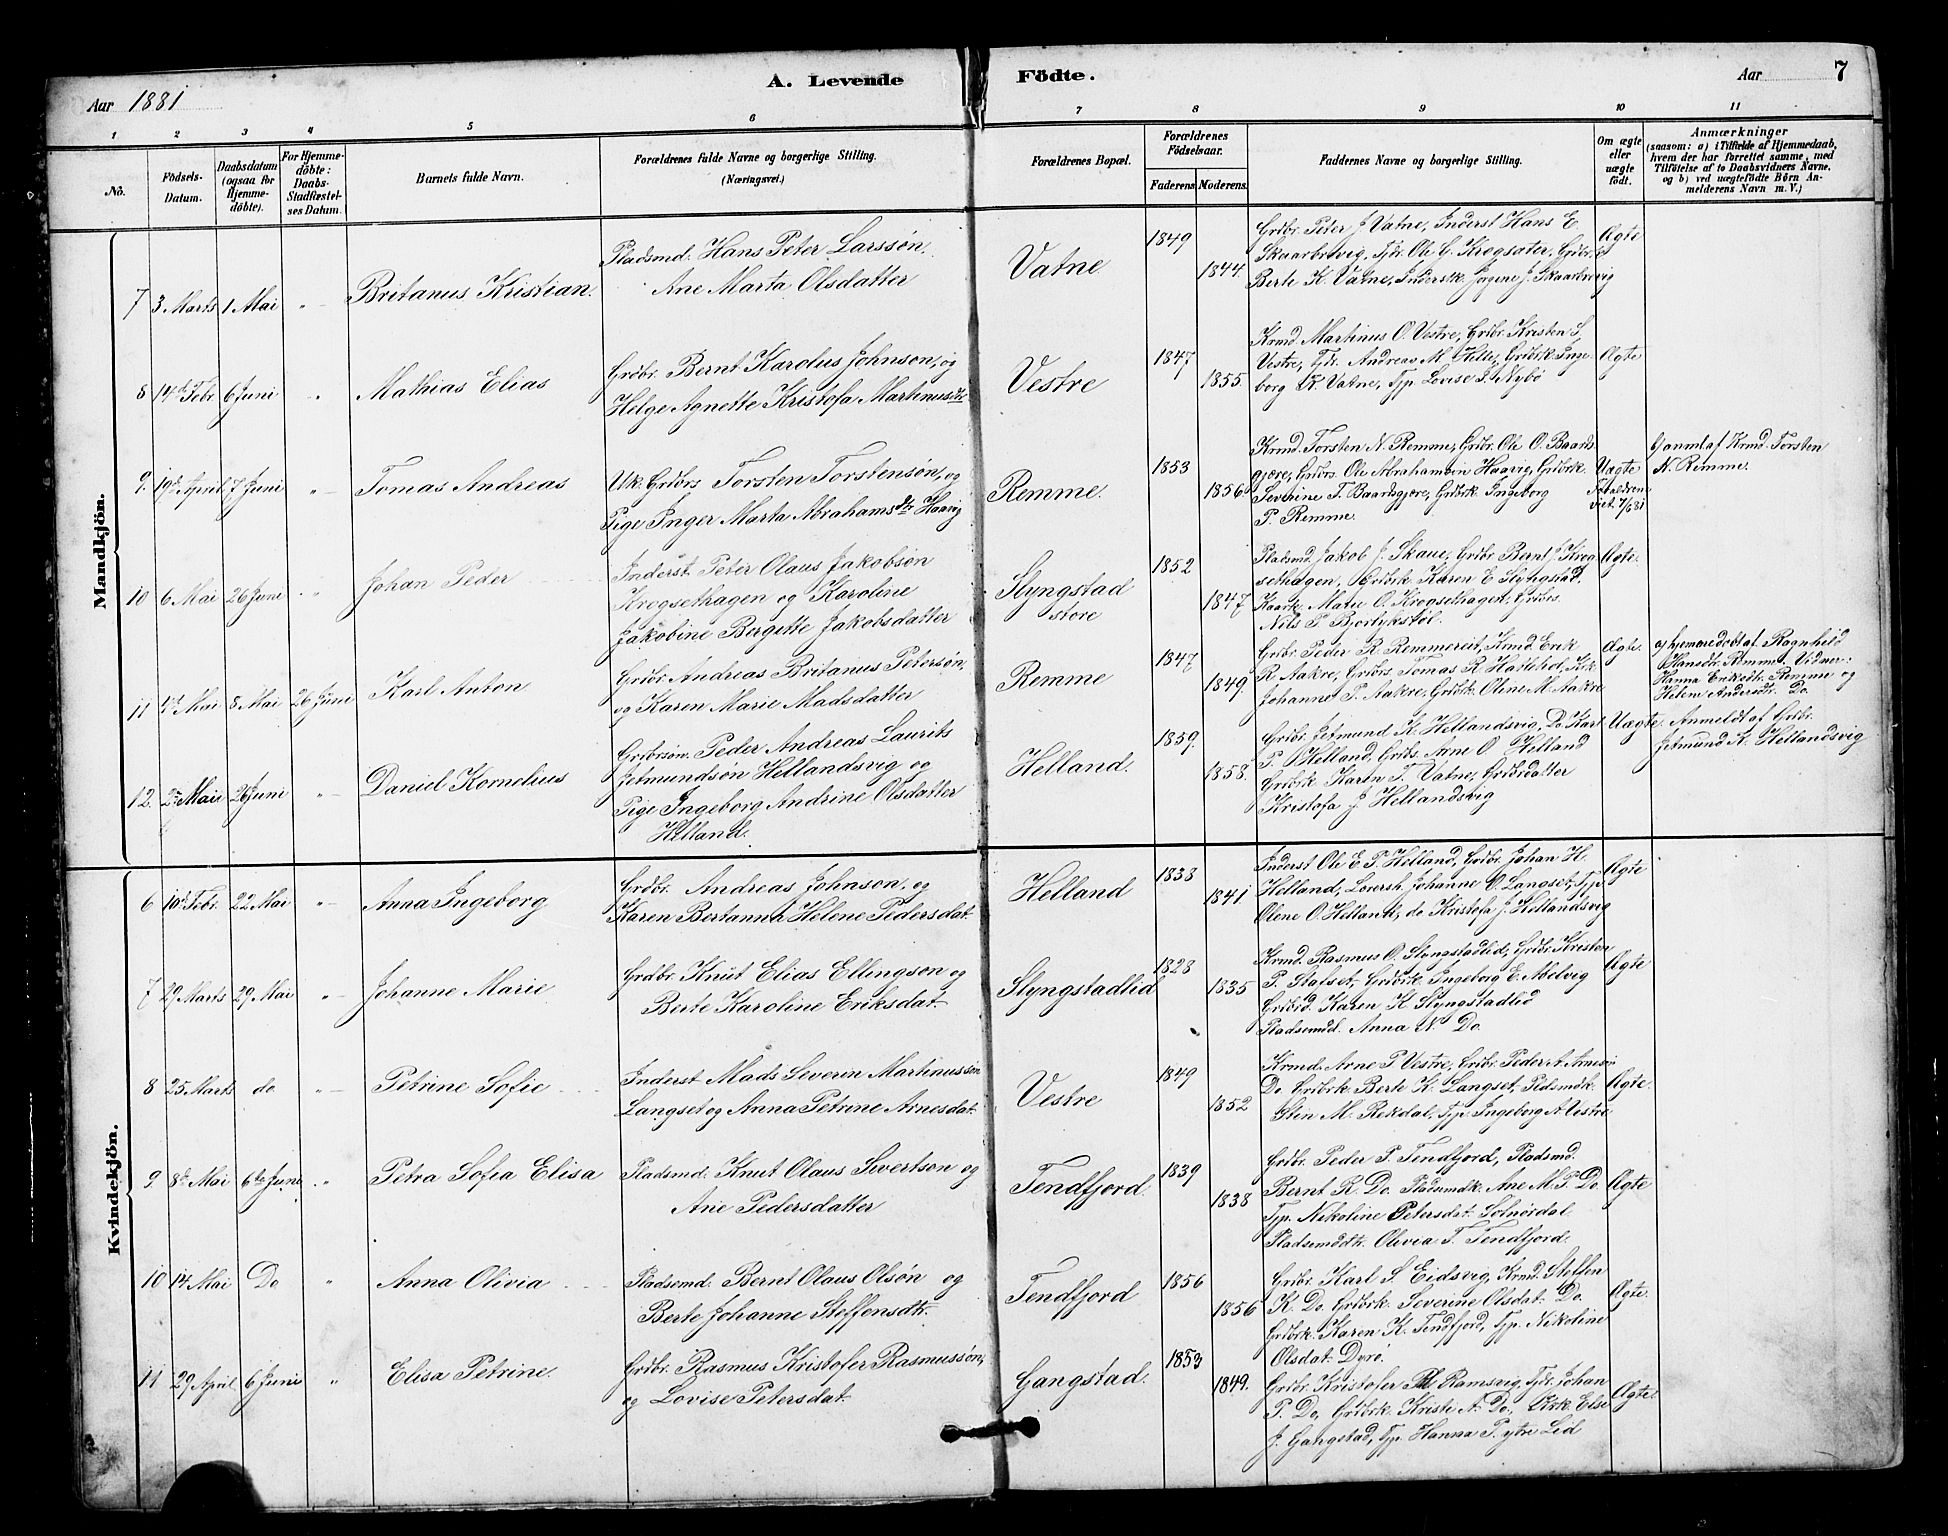 Aar 1881
A. Levende Födte.
Aar
7
1 2 3 4 5 6 7 8 9 10 11
No.
Födsels-Datum.
Daabsdatum (ogsaa for Hjemme-döbte).
For Hjemme-döbte: Daabs-Stadfæstel-ses Datum.
Barnets fulde Navn.
Forældrenes fulde Navne og borgerlige Stilling.
(Næringsvei.)
Forældrenes Bopæl.
Forældrenes Födselsaar.
Faderens. Moderens.
Faddernes Navne og borgerlige Stilling.
Om ægte eller uægte födt.
Anmærkninger
(saasom: a) i Tilfælde af Hjemmedaab,
hvem der har forrettet samme, med
Tilföielse af to Daabsvidners Navne,
og b) ved uægtefödte Börn An-
melderens Navn m. V.)
Mandkjön.
7 3 Marts 1 Mai " Britanus Kristian.
Pladsmd. Hans Peter Larssøn,
Ane Marta Olsdatter
Vatne
1849
1844.
Grdbr. Peter J Vatne, Inderst Hans E
Skaarbrevig, Tjdr. Ole G. Krogsæter, Grdbr.d
Berte K. Vatne, Inderstk. Jogene J. Skaarbrevig
Ægte
8 14de Febr. 6 Juni " Mathias Elias
Grdbr. Bernt Karolus Johnson, og
Helge Agnette Kristofa Martinusdtr
Vestre
1847
1855.
Krmd. Martinus O. Vestre, Grdbr. Kristen S.
Vestre, Tjdr. Andreas M. Hille, Grdbrk. Inge-
borg K. Vatne, Tjp. Lovise S. Nybø
Ægte
9. 19de April 7 Juni " Tomas Andreas
Uk. Grdbrs Torsten Torstensøn, og
Pige Inger Marta Abrahamsdtr Haavig
Remme.
1853
1856
Krmd. Torsten N. Remme, Grdbr. Ole O. Baards
gjære, Grdbrs. Ole Abrahamsen Haavig, Grdbrk.
Severine T. Baardsgjære, Grdbrk. Ingeborg
P. Remme.
Uægte
Forældrene
viet 7/6 81
b) anml. af Krmd. Torsten
N. Remme.
10 6 Mai 26 Juni " Johan Peder
Inderst. Peter Olaus Jakobsøn
Krogsethagen og Karoline
Jakobine Bergitte Jakobsdatter
Slyngstad
store
1852
1847
Pladsmd. Jakob J. Skaue, Grdbr. Bernt J. Krog
sethagen, Grdbrk. Karen E. Slyngstad.
Kaark. Mate O. Krogsethagen, Grdbrs.
Nils P. Bjørlykstøl.
Ægte.
11 1st Mai 8 Mai 26 Juni Karl Anton
Grdbr. Andreas Britanus Petersøn,
og Karen Marie Madsdatter
Remme
1847
1849.
Grdbr. Peder R. Remmereit, Krmd. Erik
R Aakre, Grdbrs. Tomas R. Hatlelid, Krk
Johanne P. Aakre, Grdbrk. Oline M. Aakre
Ægte.
a) hjemmedøbt af Ragnhild
Hansdtr. Remme. Vidner:
Hanna Eriksdtr. Remme og
Helene Andersdtr. Do.
12. 2den Mai 26 Juni " Daniel Kornelius
Grdbrsøn. Peder Andreas Laurits
Jetmundsøn Hellandsvig og
Pige Ingeborg Andrine Olsdatter
Helland.
Helland.
1859.
1858.
Grdbr. Jetmund K. Hellandsvig, Do. Karl
P. Helland, Grdbs. Arne O. Helland
Grdbrk. Karen T. Vatne, Grdbrdatter
Kristofa J Hellandsvig
Uægte.
Anmeldt af Grdbr.
Jetmund K. Hellandsvig
Kvindekjön.
6 10de Febr. 22 Mai " Anna Ingeborg
Grdbr. Andreas Johnson, og
Karen Bertanna Helene Pedersdat.
Helland
1838
1841
Inderst Ole E P. Helland, Grdbr. Johan H.
Helland, Lærerh. Johanne O. Langset, Tjp.
Oline O. Helland, do Kristofa J. Hellandsvig
Ægte
7 29 Marts 29 Mai " Johanne Marie
Grdbr. Knut Elias Ellingson og
Berte Karoline Eriksdat.
Slyngstadlid
1828
1835
Krmd. Rasmus O. Slyngstadlid, Grdbr. Kristen
P. Stafset, Grdbrk. Ingeborg E. Abelvig
Grdbrd. Karen K Slyngstadlid
Pladsemdd. Anna N Do.
Ægte
8 25 Marts do " Petrine Sofie
Inderst Mads Severin Martinussøn
Langset og Anna Petrine Arnesdat.
Vestre
1849
1852
Krmd. Arne P Vestre, Grdbr. Peder A. Arnesøn
Do. Grdbrk. Berte K. Langset, Pldsmdk.
Stin M. Rekdal, Tjp. Ingeborg A. Vestre
Ægte.
9. 8de Mai 6te Juni " Petra Sofia Elisa
Pladsmd. Knut Olaus Sivertson og
Ane Pedersdatter
Tendfjord.
1839
1838
Grdbr. Peder P. Tendfjord, Pladsmd.
Bernt R. Do. Pladsmdk. Ane M. P. Do.
Tjp. Nikoline Petersdat. Solnørdal.
Pladsemddtr. Olivia T. Tendfjord.
Ægte
10 14 Mai Do " Anna Olivia
Pladsemd. Bernt Olaus Olsøn og
Berte Johanne Steffensdtr.
Tendfjord
1856
1856
Grdbr. Karl S. Eidsvig, Krmd. Steffen
K. Do. Grdbrk. Severine Olsdat. Do.
Grdbrk. Karen K. Tendfjord, Tjp. Nikoline
Olsdat. Dyrø.
Ægte.
11 29 April 6 Juni " Elisa Petrine.
Grdbr. Rasmus Kristofer Rasmussøn,
og Lovise Petersdat.
Gangstad.
1853
1849.
Grdbr. Kristofer M Ramsvig, Tjdr. Johan
P. Do, Grdbrk. Kristi A. Do., Kirk. Else
J. Gangstad, Tjp. Hanna P. ytre Lid
Ægte.